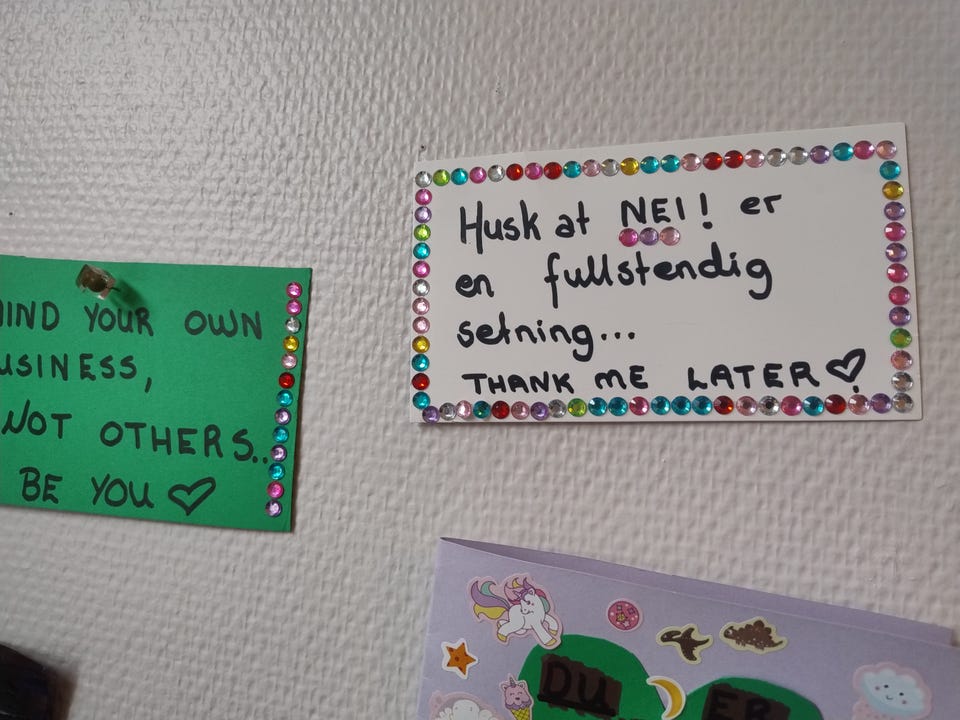 YOUR OWN
NOT OTHERS..
BE YOU
Husk at NEI! er
en fullstendig
setning...
THANK ME LATER
DU
ER